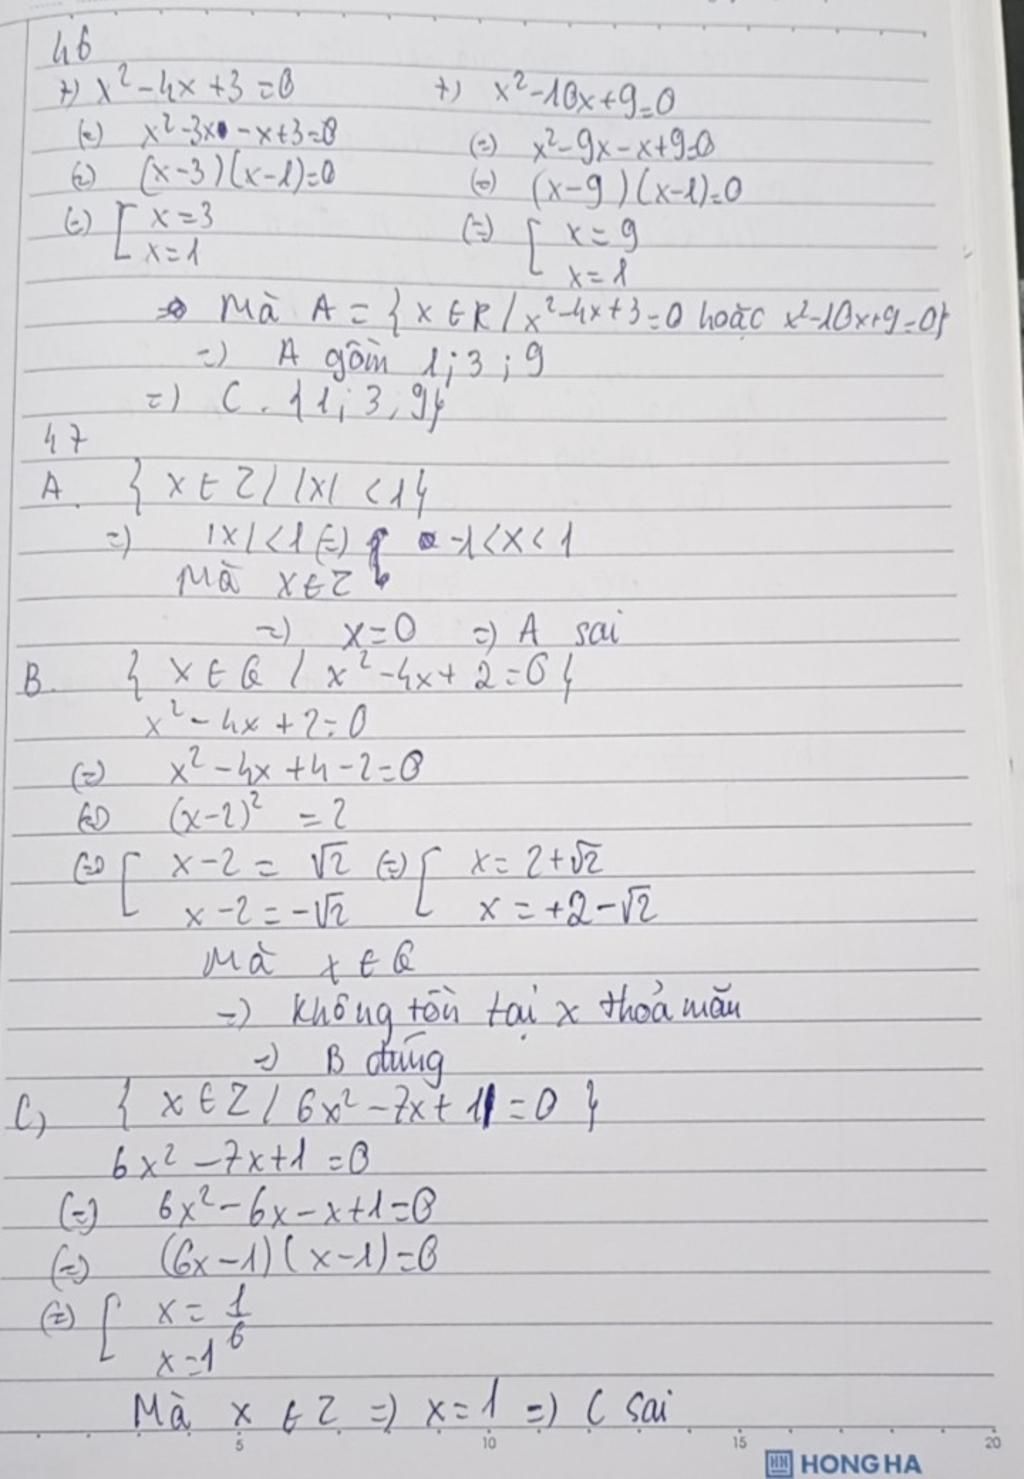 46
+) x² - 4x + 3 = 0
(=) x² - 3x - x + 3 = 0
(=) (x - 3)(x - 1) = 0
(=) [ x = 3
x = 1
+) x² - 10x + 9 = 0
(=) x² - 9x - x + 9 = 0
(=) (x - 9)(x - 1) = 0
(=) [ x = 9
x = 1
=> Mà A = { x ∈ R / x² - 4x + 3 = 0 hoặc x² - 10x + 9 = 0}
=) A gồm 1; 3; 9
=) C. {1; 3, 9}
47
A. { x ∈ Z / |x| < 1}
=) |x| < 1 (=) -1 < x < 1
Mà x ∈ Z
=) x = 0 =) A sai
B. { x ∈ Q / x² - 4x + 2 = 0 }
x² - 4x + 2 = 0
(=) x² - 4x + 4 - 2 = 0
(=) (x - 2)² = 2
(=) [ x - 2 = √2 (=) [ x = 2 + √2
x - 2 = -√2 x = +2 - √2
Mà x ∈ Q
=) Không tồn tại x thoả mãn
=) B đúng
C, { x ∈ Z / 6x² - 7x + 1 = 0 }
6x² - 7x + 1 = 0
(=) 6x² - 6x - x + 1 = 0
(=) (6x - 1)(x - 1) = 0
(=) [ x = 1/6
x = 1
Mà x ∈ Z =) x = 1 =) C sai
5 10 15 20
HH HONG HA